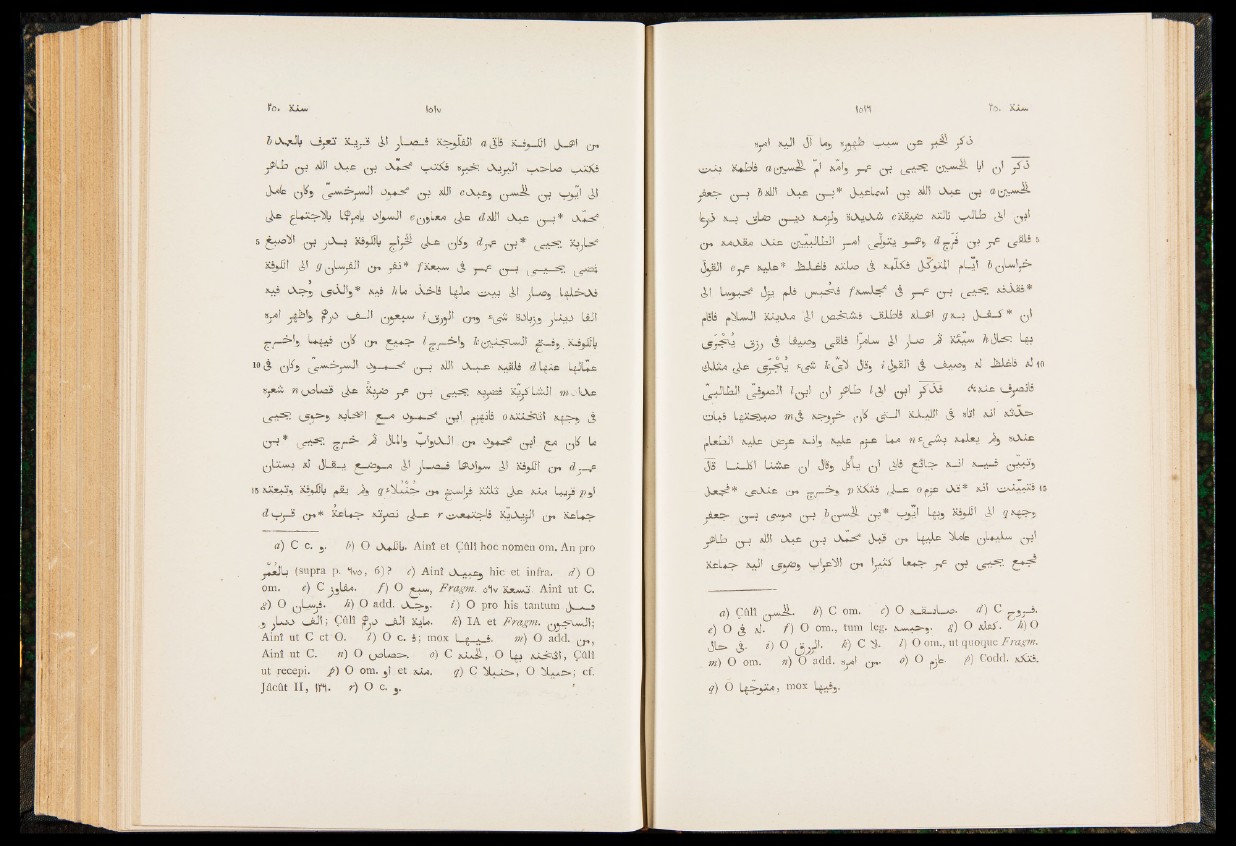 سنة ٢٥٠ ١٥١٦
ذكر الخبر عن سبب ظهوره وما آل اليه امره
ذكر ان ابا الحسين يحيى بن عمر وامّه امّ الحسين a فاطمة بنت
الحسين a بن عبد الله بن اسماعيل *بن عبد الله b بن جعفر
ابن ابى طالب نالته ضيقة c شديدة ولزمه دين ضاق به ذرعا
5 فلقى عمر بن فرج d وهو يتولّى امر الطالبيّين عند مقدمه من
خراسان b ايّام المتوكّل فكلّمه فى صلته فاغلظ *عليه عمر e القول
*فقذفه يحيى بن عمر فى مجلسه f فحبس فلم يزل محبوسا الى
ان *كفل به g اهله فاطلق فشخص الى مدينة السلام فاقام
بها بحال h سيّئة ثم صار الى سامرّا فلقى وصيفا فى رزق يُجْرَى
10 له فاغلظ له وصيف فى القول i وقال لأىّ k شىء يُجْرَى على مثلك
فانصرف عنه، فذكر ابن ابى l طاهر ان ابن l الصوفىّ الطالبىّ
حدّثه انه اتاه فى الليلة التى كان خروجه فى m صبيحتها فبات
عنده ولم يعلمه بشىء n مما عزم عليه وانه عرض عليه الطعام
وتبيّن فيه انه جائع فابى ان يأكل وقال ان عشنا اكلنا قال
15 فتبيّنت انه *قد عزم o على فتكة p وخرج من عندى *فجعل
وجهه q الى الكوفة وبها ايّوب *بن الحسن b بن موسى بن جعفر
ابن سليمان عاملا عليها من قبل محمّد بن عبد الله بن طاهر
فجمع يحيى بن عمر جمعا كثيرا من الاعراب وضوى اليه جماعة
a) Çûlî الحسن. b) C om. c) O d) C فروج.
e) O فى له. f) O om., tum leg. وحبسه. g) O كفله. h) O
فى حال. i) O الرزق. k) C لا. l) O om., ut quoque Fragm.
m) O om. n) O add. من امره. o) O عازم. p) Codd. فتكه.
q) O متوجّها, mox وفيها.
سنة ٢٥٠ ١٥١٧
من اهل الكوفة فاتى a الفلّوجة فصار الى قرية تعرف بالعمد b
فكتب صاحب البريد بخبره فكتب محمّد بن عبد الله بن طاهر
الى ايّوب بن الحسن وعبد c الله بن محمود السرخسىّ وكان عامل
محمّد *بن عبد الله d على معاون e السواد يأمرهما بالاجتماع على
5 محاربة يحيى *بن عمر d وكان على الخراج بالكوفة بدر بن الاصبغ
فمضى يحيى بن عمر فى سبعة f *نفر من الفرسان g الى الكوفة
فدخلها وصار الى بيت مالها فاخذ ما h فيه *والذى وُجد فيه
الفا دينار وزيادة شىء ومن الورق i سبعون الف درهم واظهر امره
بالكوفة وفتح السجنين k واخرج l جميع من كان فيهما واخرج
10 عمّالها عنها d فلقيه عبد الله بن محمود السرخسىّ وكان فى
عداد m الشاكريّة فضربه يحيى بن عمر ضربة على قصاص n شعره
فى وجهه اثخنته o فانهزم ابن محمود مع اصحابه وحوى يحيى
ما كان مع ابن محمود من الدوابّ والمال ثم خرج يحيى *بن
عمر d من الكوفة الى سوادها فصار الى موضع يقال له بستان
15 او p قريبا منه على ثلثة فراسخ من جُنْبُلاء q ولم يقم بالكوفة وتبعته
جماعة من الزيديّة فاجتمعت r على نصرته جماعة *من قرب d
a) C c. و. b) O بالعمد. Ainî et Çûlî hoc nomen om. An pro
بالغُمَير (supra p. ٩٧٥, 6)? c) Ainî وعبيد hic et infra. d) O
om. e) C مغاور. f) O سبع, Fragm. ٥٦٧ تسعة. Ainî ut C.
g) O فرسان. h) O add. وجد. i) O pro his tantum
; Çûlî مائة الف درهم و k) IA et Fragm. السجون;
Ainî ut C et O. l) O c. ف; mox فيها. m) O add. من,
Ainî ut C. n) O خصاص. o) C , O , Çûlî
ut recepi. p) O om. او et منه. q) C جنبلا, O حنبلا; cf.
Jâcût II, ١٢٦. r) O c. و.